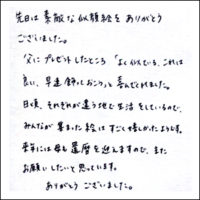 先日は素敵な似顔絵をありがとう
ございました。
父にプレゼントしたところ「よく似ている、これは
良い、早速飾っておこう」と喜んでくれました。
日頃、それぞれが違う地で生活をしているので、
みんなが集まった絵はすごく嬉しかったようです。
来年には母も還暦を迎えますので、また
お願いしたいと思っています。
ありがとうございました。